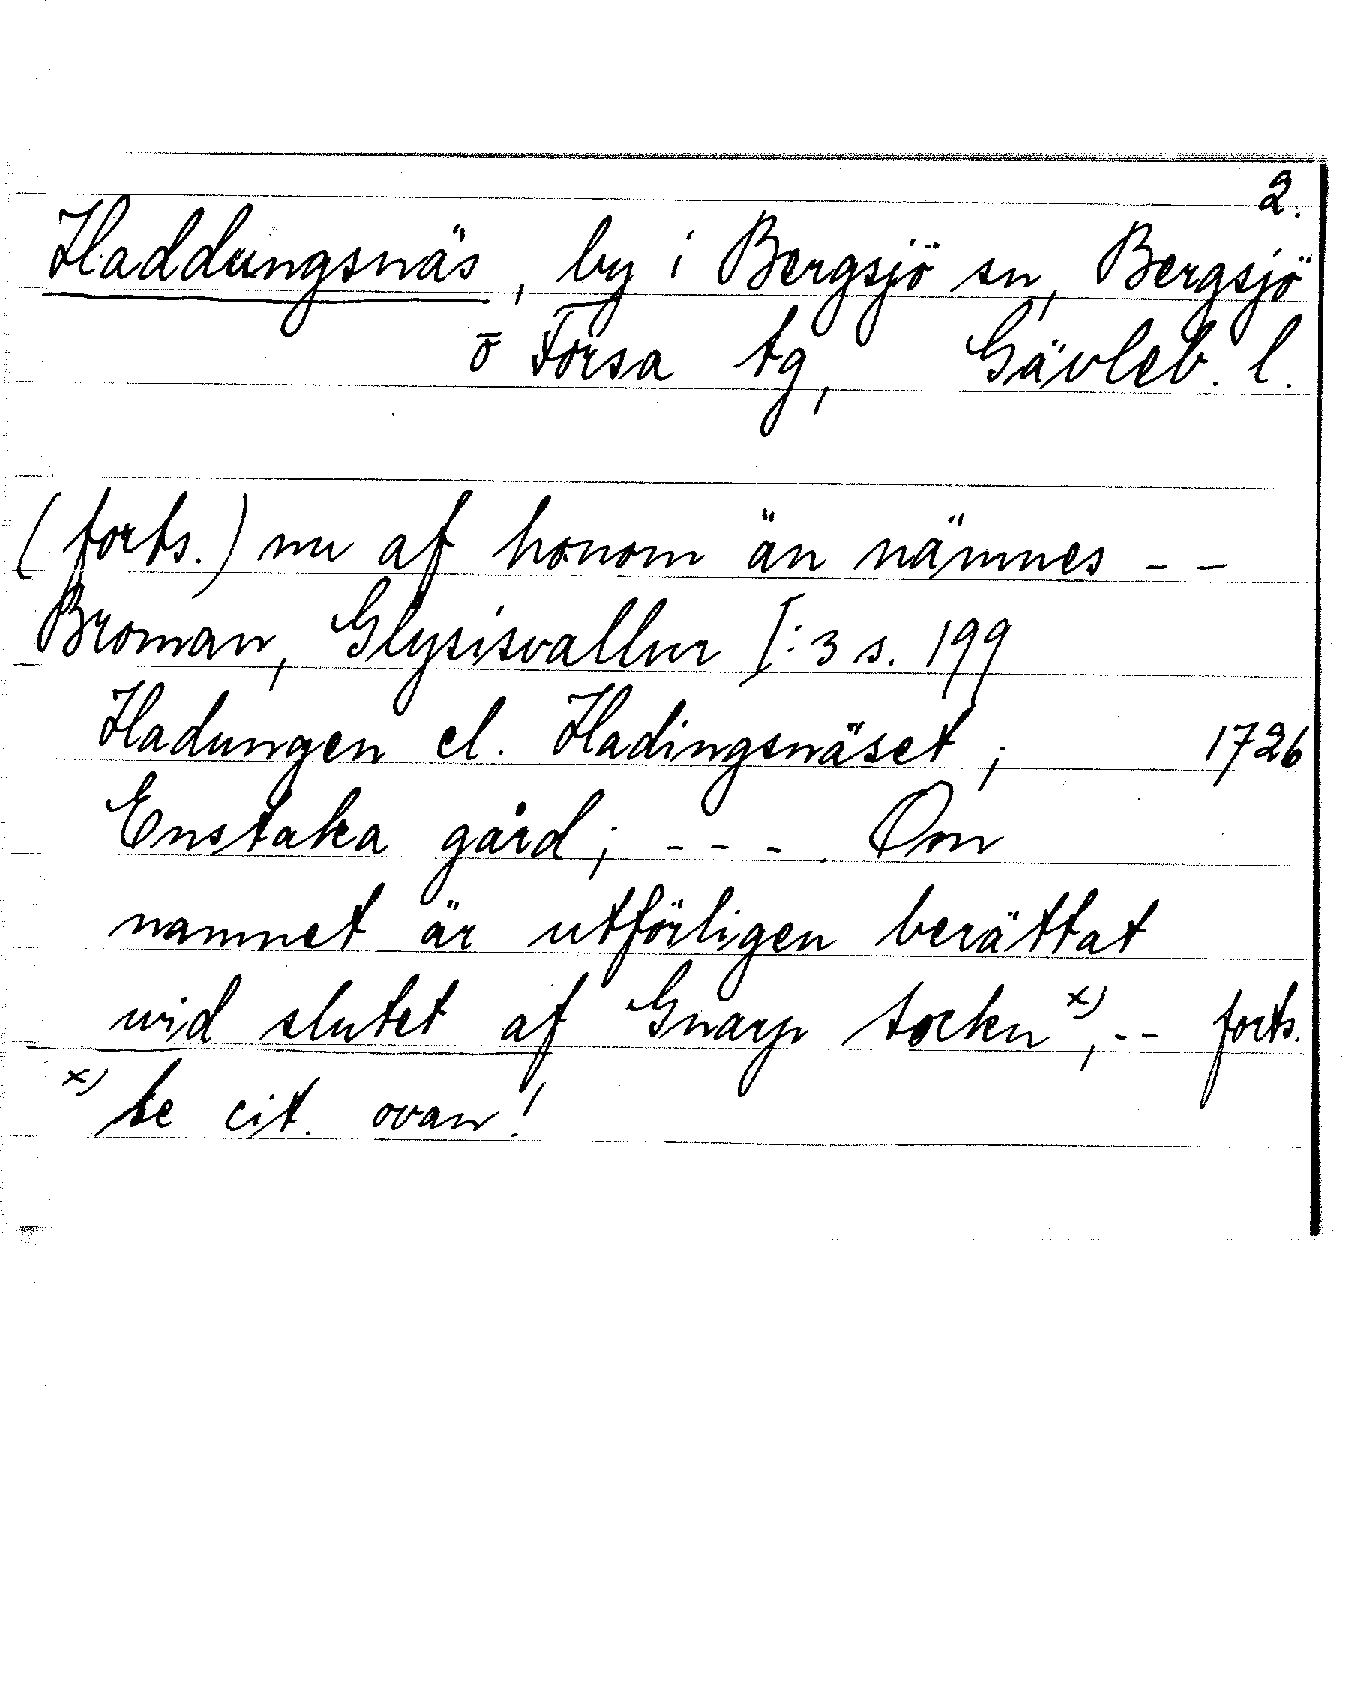 2.
Haddungsnäs, by i Bergsjö sn, Bergsjö
o Forsa tg, Gävleb. l.
(forts.) nu af honom än nämnes - -
Broman, Glysisvallur I:3 s. 199
Hadungen el. Hadingsnäset; 1726
Enstaka gård; - - -. Om
namnet är utförligen berättat
wid slutet af Gnarp sockn x), - - forts.
x) Se cit. ovan!